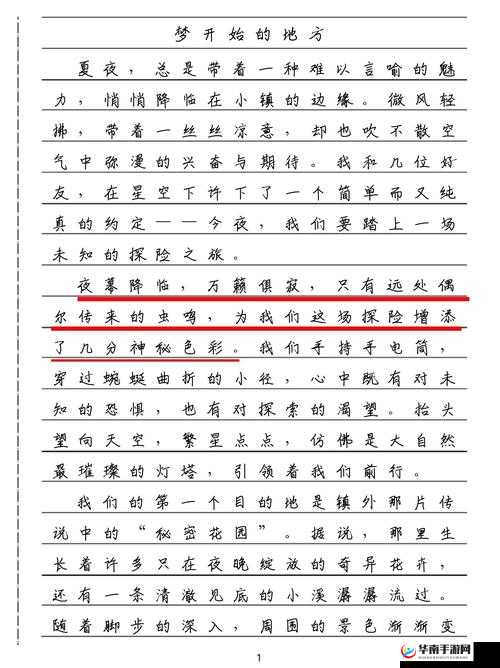 梦开始的地方
夏夜，总是带着一种难以言喻的魅
力，悄悄降临在小镇的边缘。微风轻
拂，带着一丝丝凉意，却也吹不散空
气中弥漫的兴奋与期待。我和几位好
友，在星空下许下了一个简单而又纯
真的约定——今夜，我们要踏上一场
未知的探险之旅。
夜幕降临，万籁俱寂，只有远处偶
尔传来的虫鸣，为我们这场探险增添
了几分神秘色彩。我们手持手电筒，
穿过蜿蜒曲折的小径，心中既有对未
知的恐惧，也有对探索的渴望。抬头
望向天空，繁星点点，仿佛是大自然
最璀璨的灯塔，引领着我们前行。
我们的第一个目的地是镇外那片传
说中的“秘密花园”。据说，那里生
长着许多只在夜晚绽放的奇异花卉，
还有一条清澈见底的小溪潺潺流过。
随着脚步的深入，周围的景色渐渐变
1
华南手游网